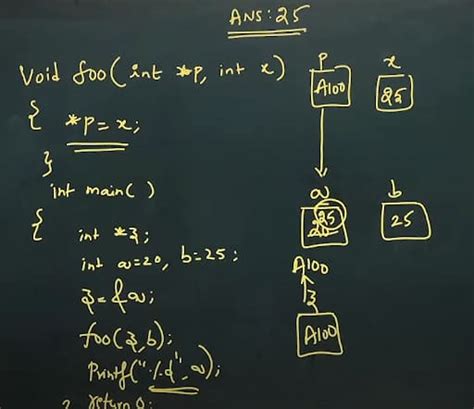 ANS: 25
void foo(int *p, int x)
{ *p = x;
}
int main( )
{ int *z;
int a=20, b=25;
z=&a;
foo(z,b);
Printf("%d",a);
return 0;
p x
A100 25
a b
25 25
20
A100
z
A100